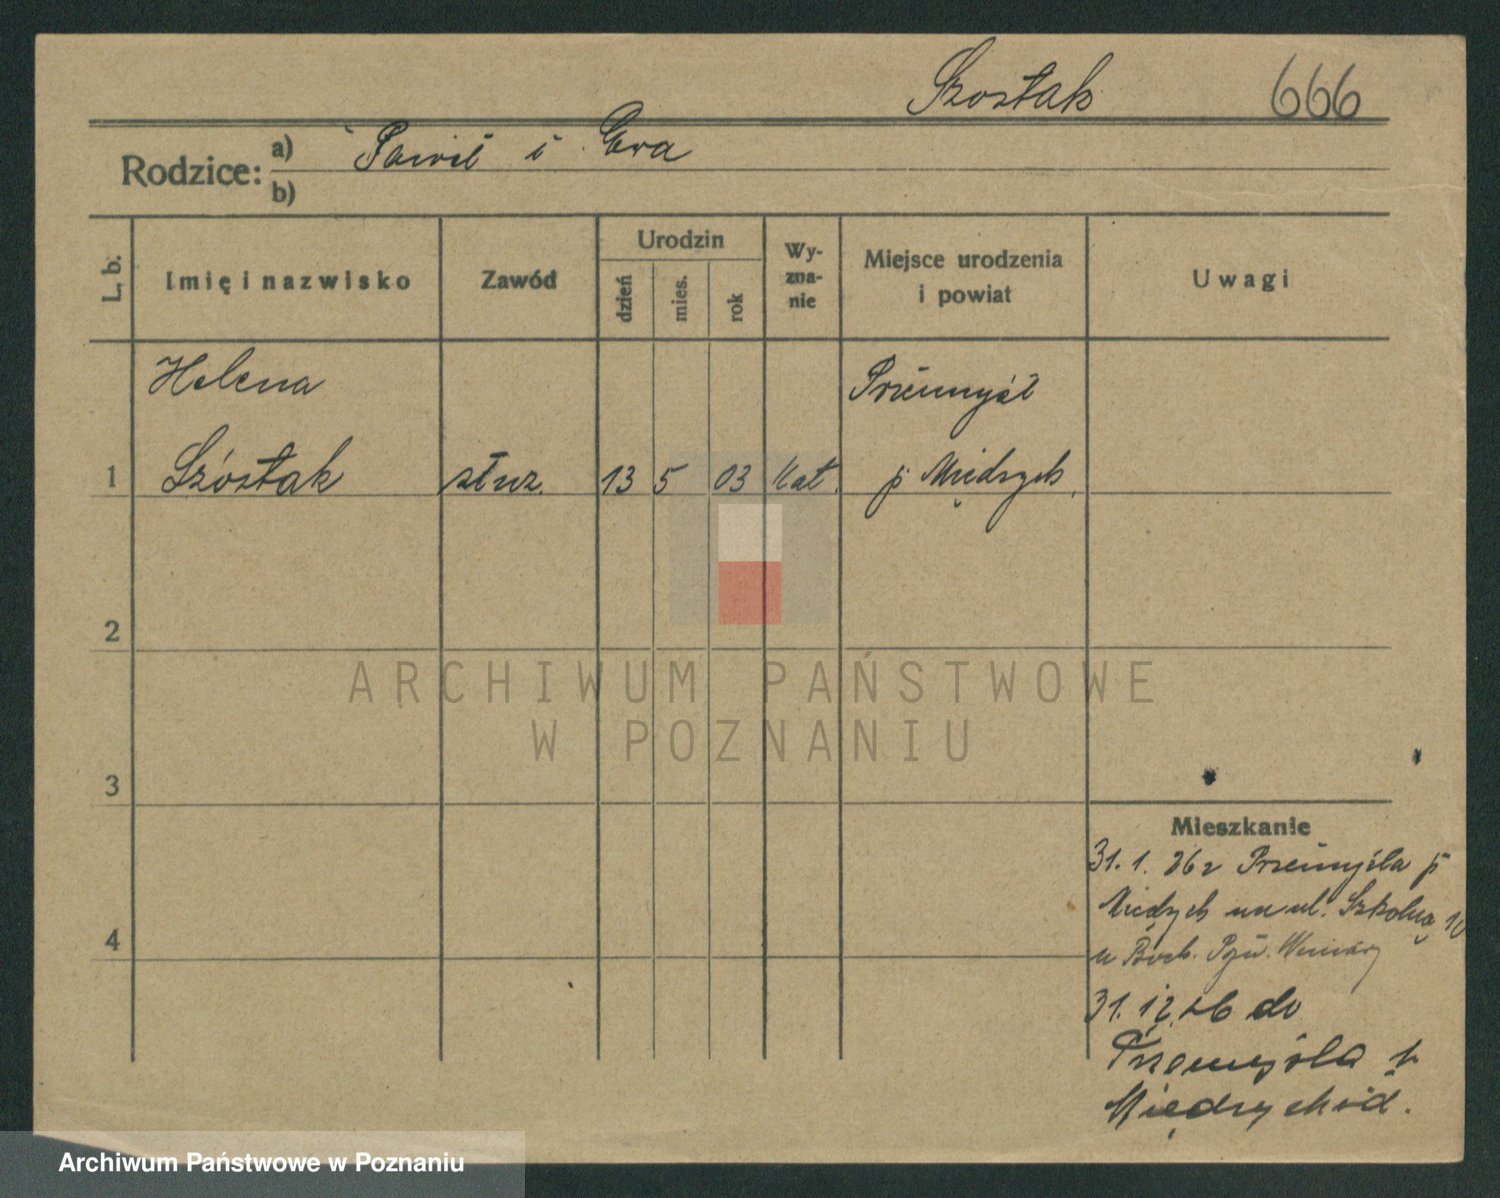 Szostak 666
Rodzice: a) Paweł i Ewa
b)
L. b. Imię i nazwisko Zawód Urodzin dzień mies. rok Wyzna-nie Miejsce urodzenia i powiat Uwagi
Helena Przemyśl
1 Szóstak służ. 13 5 03 kat. p. Międzych.
2
3
4
Mieszkanie
31. 1. 26 r Przemyśla p
Międzych na ul. Szkolną 10
u
31. 12. 26 do
Przemyśla p.
Międzychód.
ARCHIWUM PAŃSTWOWE
W POZNANIU
Archiwum Państwowe w Poznaniu